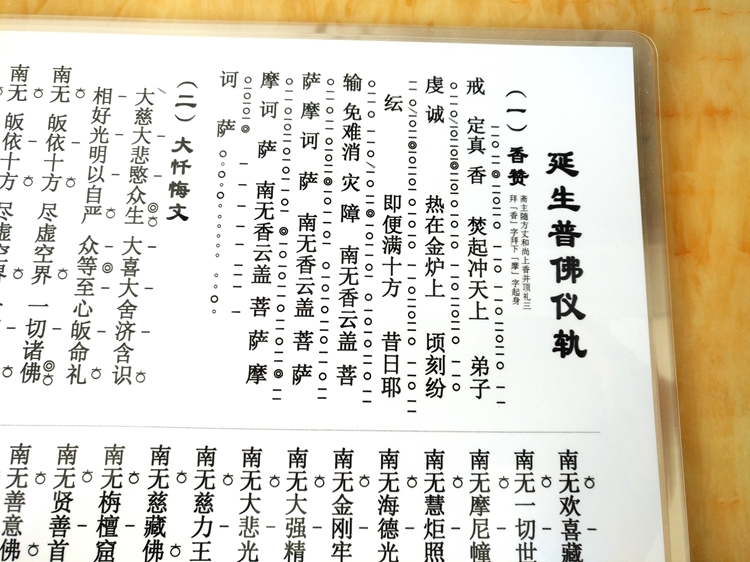 延生普佛仪轨
（一）香赞
斋主随方丈和尚上香并顶礼三
拜「香」字拜下「摩」字起身
戒 定真 香 焚起冲天上 弟子
虔诚 热在金炉上 顷刻纷
纭 即便满十方 昔日耶
输 免难消 灾 障 南无香云盖 菩
萨 摩 诃 萨 南无香云盖 菩 萨
摩 诃 萨 南无香云盖 菩 萨 摩
诃 萨
（二）大忏悔文
大慈大悲愍众生 大喜大舍济含识
相好光明以自严 众等至心皈命礼
南无 皈依十方 尽虚空界 一切诸佛
南无 皈依十方 尽虚空界
南无欢喜藏
南无一切世
南无摩尼幢
南无慧炬照
南无海德光
南无金刚牢
南无大强精
南无大悲光
南无慈力王
南无慈藏佛
南无栴檀窟
南无贤善首
南无善意佛